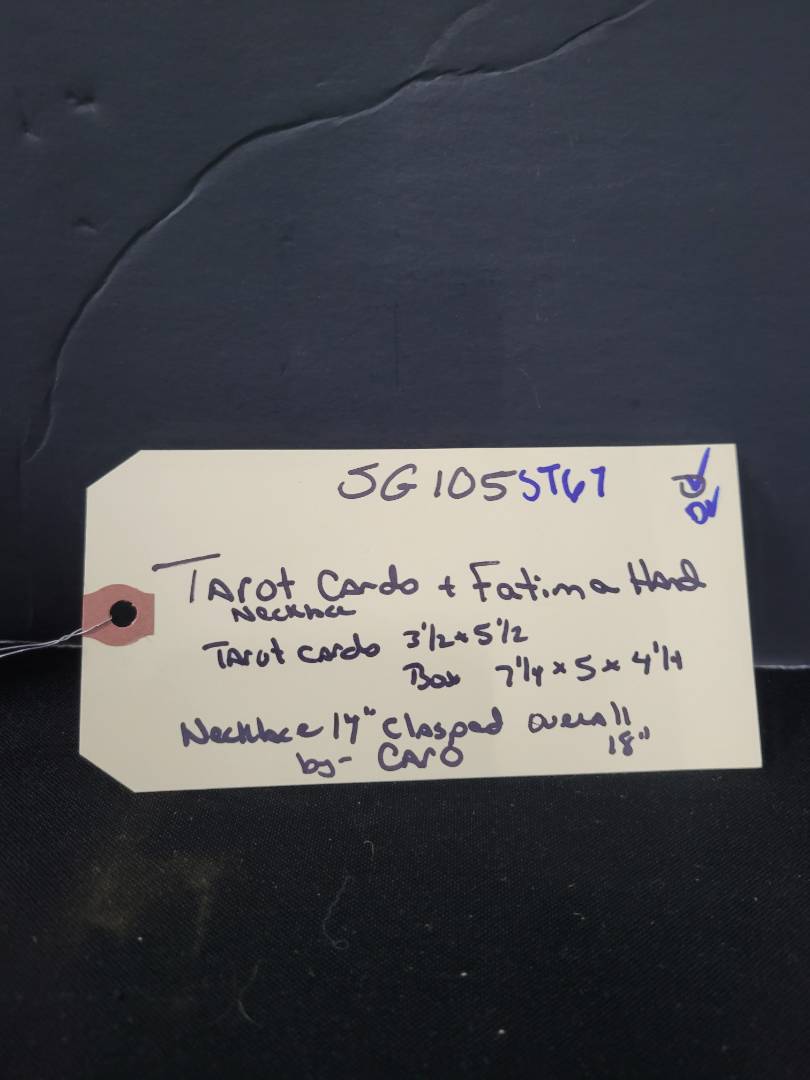 SG105 ST67
DV
Tarot Cards + Fatima Hand
Necklace
Tarot cards 3 1/2 x 5 1/2
Box 7 1/4 x 5 x 4 1/4
Necklace 14" clasped overall
18"
by - CARO